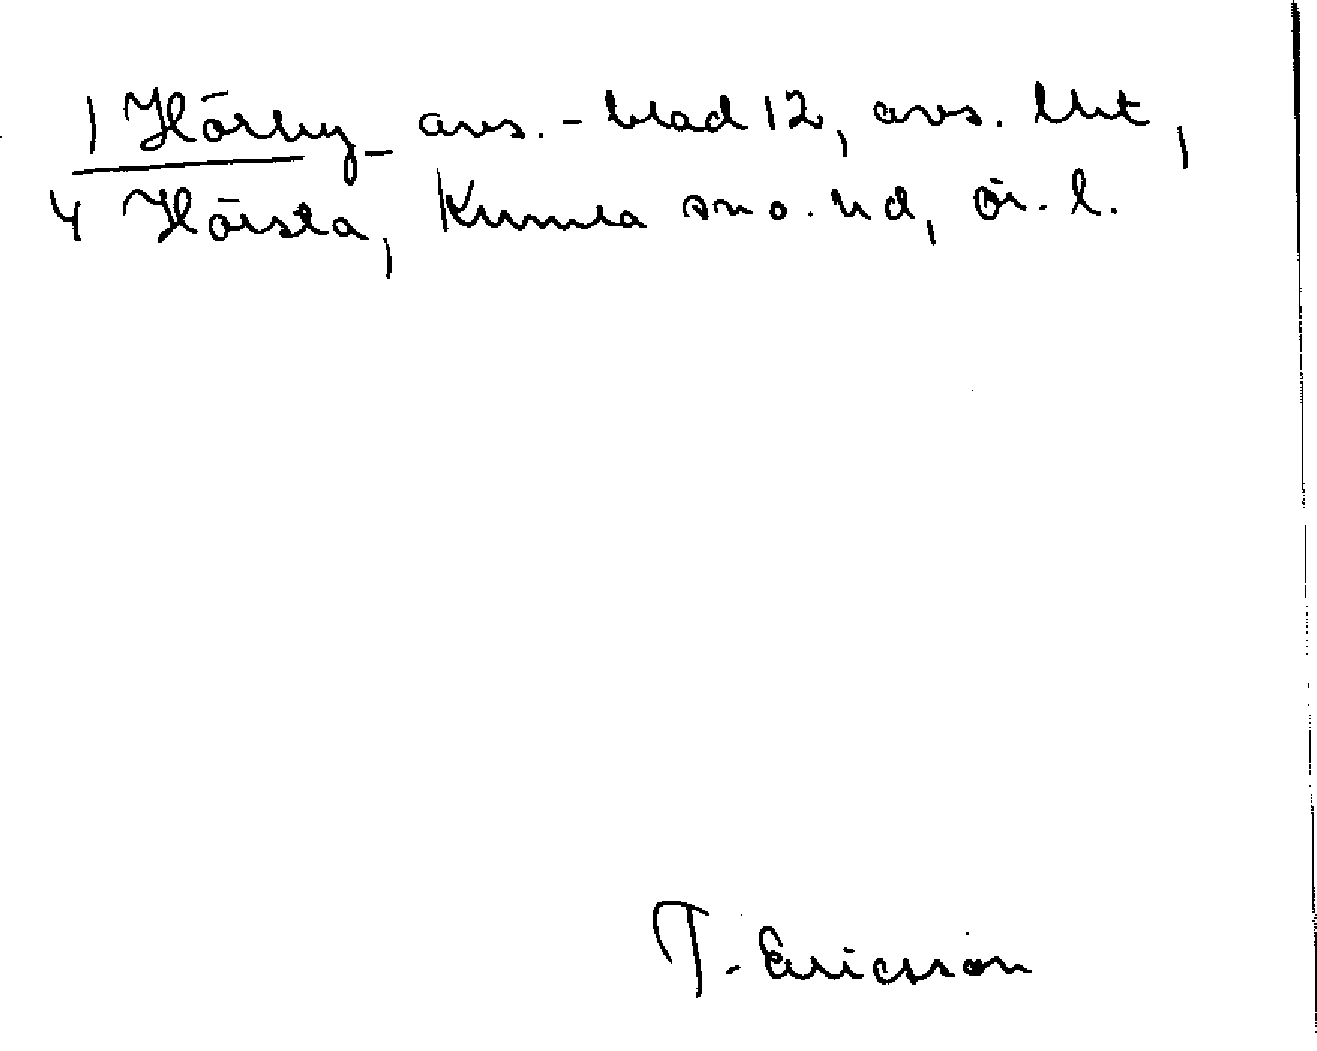 1 Hörby avs.-blad 12, avs. Ukt,
4 Hörsta, Kumla sn o. hd, ör. l.
T. Ericsson